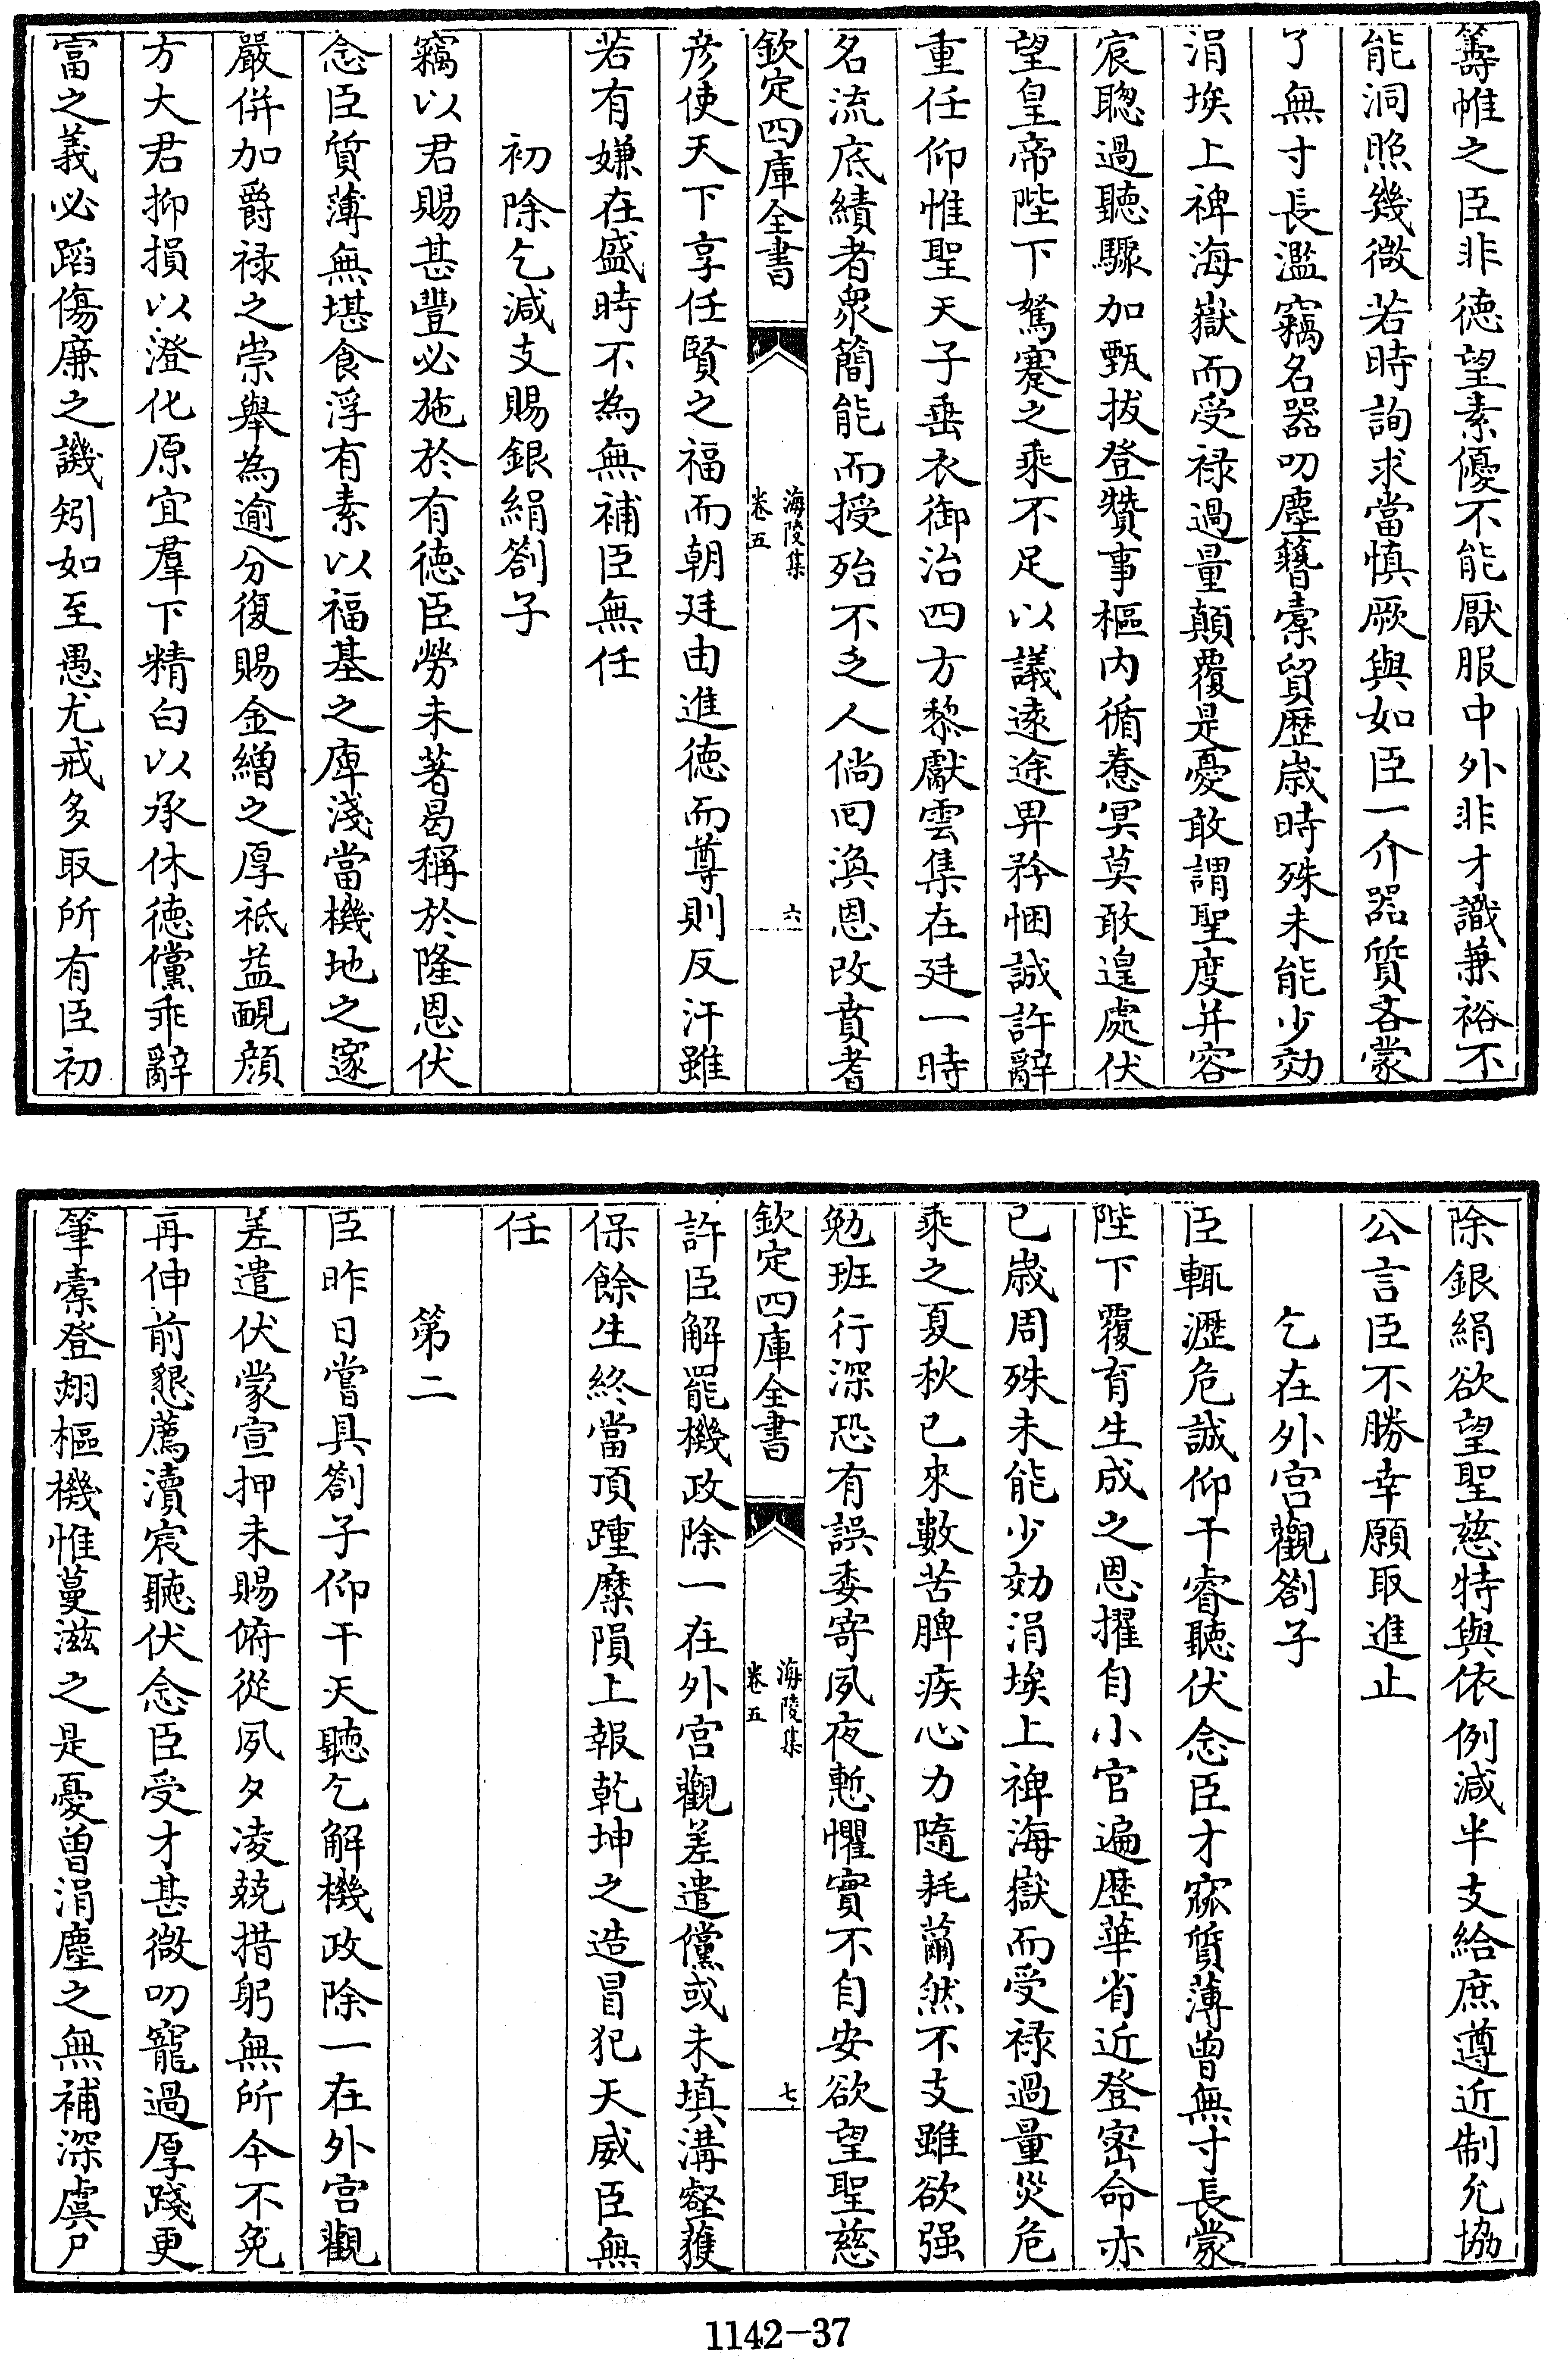 籌帷之臣非德望素優不能厭服中外非才識兼裕不
能洞照幾微若時詢求當慎厥與如臣一介器質吝蒙
了無寸長濫竊名器叨塵簪橐貿歴歳時殊未能少効
涓埃上裨海嶽而受禄過量顛覆是憂敢謂聖度并容
宸聰過聽驟加甄拔登贊事樞内循惷冥莫敢遑處伏
望皇帝陛下駑蹇之乘不足以議逺途畀矜悃誠許辭
重任仰惟聖天子垂衣御治四方黎獻雲集在廷一時
名流底績者衆簡能而授殆不乏人倘回渙恩改賁耆
欽定四庫全書
海陵集
卷五
六
彦使天下享任賢之福而朝廷由進徳而尊則反汗雖
若有嫌在盛時不為無補臣無任
初除乞減支賜銀絹劄子
竊以君賜甚豐必施於有徳臣勞未著曷稱於隆恩伏
念臣質薄無堪食浮有素以福基之庳淺當機地之邃
嚴併加爵禄之崇舉為逾分復賜金繒之厚祗益靦顔
方大君抑損以澄化原宜羣下精白以承休徳儻乖辭
富之義必蹈傷廉之譏矧如至愚尤戒多取所有臣初
除銀絹欲望聖慈特與依例減半支給庶遵近制允協
公言臣不勝幸願取進止
乞在外宫觀劄子
臣輒瀝危誠仰干睿聽伏念臣才窳質薄曾無寸長蒙
陛下覆育生成之恩擢自小官遍歴華省近登密命亦
已歳周殊未能少効涓埃上裨海嶽而受禄過量災危
乘之夏秋已來數苦脾疾心力隨耗薾然不支雖欲强
勉班行深恐有誤委寄夙夜慙懼實不自安欲望聖慈
欽定四庫全書
海陵集
卷五
七
許臣解罷機政除一在外宫觀差遣儻或未填溝壑獲
保餘生終當頂踵糜隕上報乾坤之造冒犯天威臣無
任
第二
臣昨日嘗具劄子仰干天聽乞解機政除一在外宫觀
差遣伏蒙宣押未賜俯從夙夕凌兢措躬無所今不免
再伸前懇薦瀆宸聽伏念臣受才甚微叨寵過厚踐更
筆橐登翊樞機惟蔓滋之是憂曾涓塵之無補深虞尸
1142-37